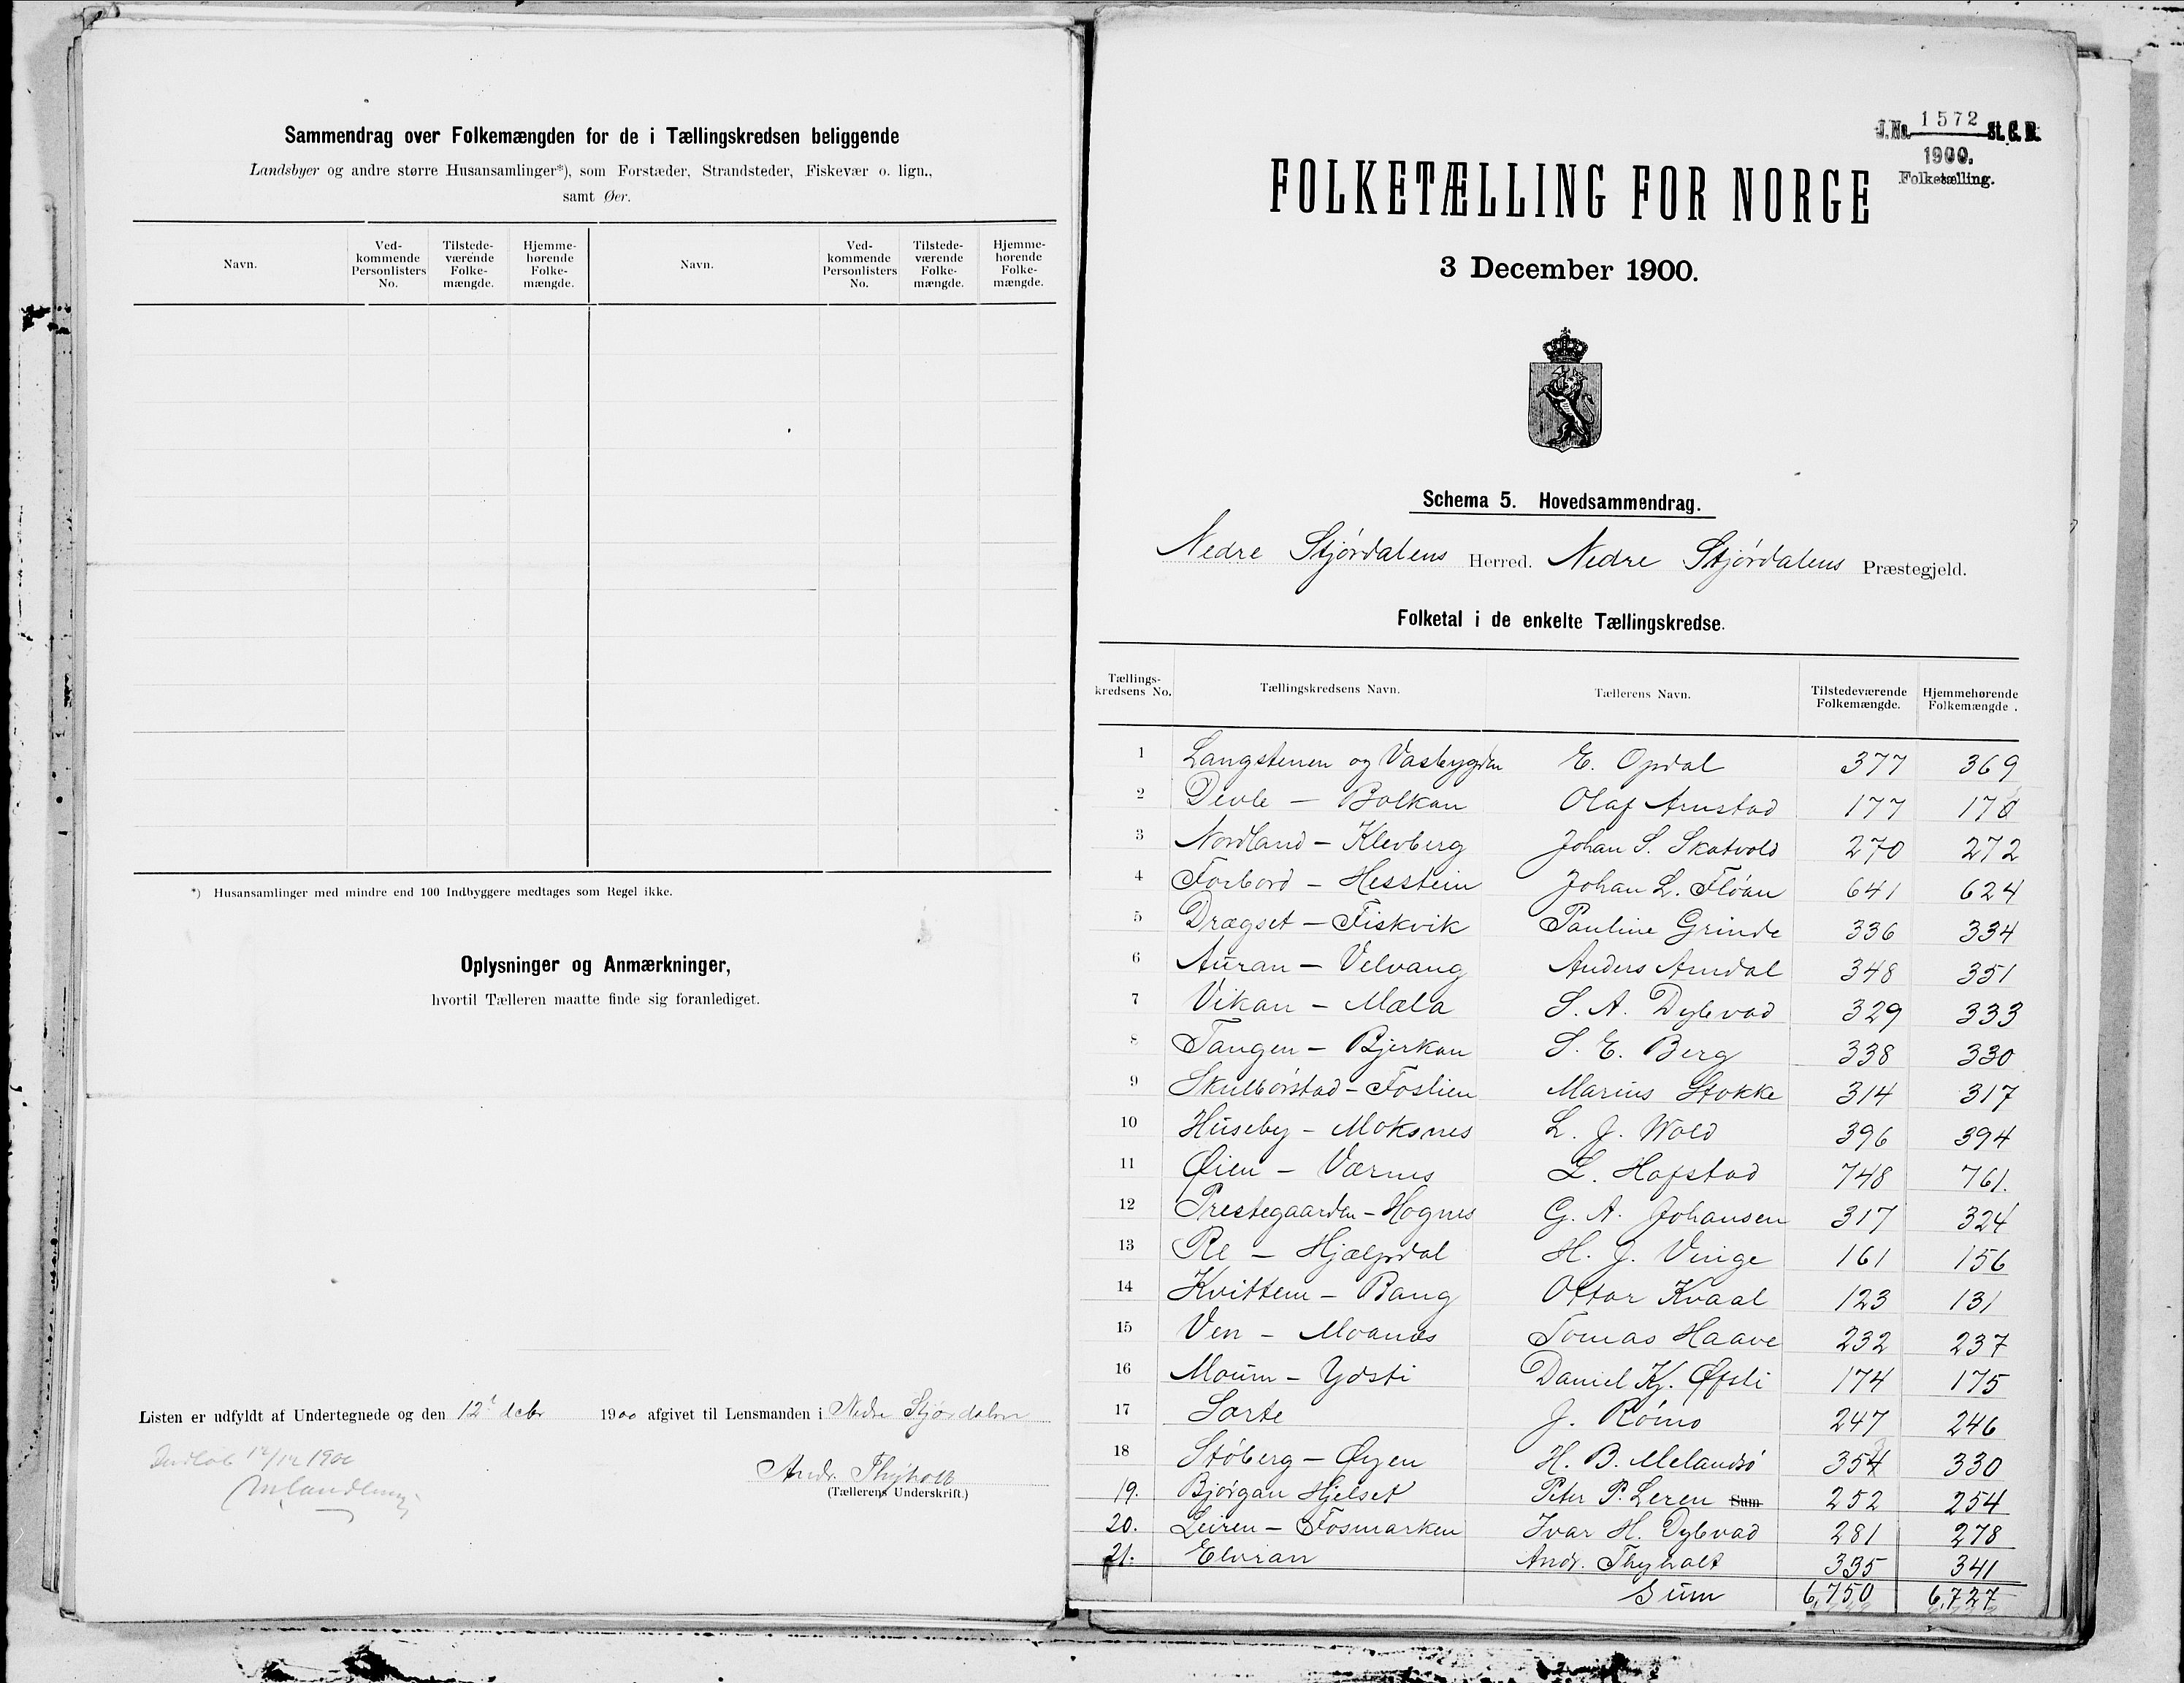 Sammendrag over Folkemængden for de i Tællingskredsen beliggende
Landsbyer og andre større Husansamlinger*), som Forstæder, Strandsteder, Fiskevær o. lign.,
samt Øer.
Navn. Ved-kommende Personlisters No. Tilstede-værende Folke-mængde. Hjemme-hørende Folke-mængde. Navn. Ved-kommende Personlisters No. Tilstede-værende Folke-mængde. Hjemme-hørende Folke-mængde.
*) Husansamlinger med mindre end 100 Indbyggere medtages som Regel ikke.
Oplysninger og Anmærkninger,
hvortil Tælleren maatte finde sig foranlediget.
Listen er udfyldt af Undertegnede og den 12t debr 1900 afgivet til Lensmanden i Nedre Stjørdalen
12/12 1900
Andr. Thyholt
(Tællerens Underskrift.)
J. No. 1572 St. C. B.
1900.
Folketælling.
FOLKETÆLLING FOR NORGE
3 December 1900.
Schema 5. Hovedsammendrag.
Nedre Stjørdalens Herred. Nedre Stjørdalens Præstegjeld.
Folketal i de enkelte Tællingskredse.
Tællings-kredsens No. Tællingskredsens Navn. Tællerens Navn. Tilstedeværende Folkemængde. Hjemmehørende Folkemængde.
1 Langstenen og Vasbygden E. Opdal 377 369
2 Devle - Bolkan Olaf Arnstad 177 170
3 Nordland - Klevberg Johan S. Skatvold 270 272
4 Forbord - Hesstein Johan L. Fløan 641 624
5 Drægset - Fiskvik Pauline Grinde 336 334
6 Auran - Velvang Anders Arndal 348 351
7 Vikan - Mæla S. A. Dybvad 329 333
8 Tangen - Bjerkan S. E. Berg 338 330
9 Skulbørstad - Foslien Marius Stokke 314 317
10 Huseby - Moksnes L. J. Wold 396 394
11 Øien - Værnes L. Hofstad 748 761.
12 Prestegaarden - Hognes G. A. Johansen 317 324
13 Re - Hjælpdal H. J. Vinge 161 156
14 Kvittem - Bang Ottar Kvaal 123 131
15 Ven - Moanæs Tomas Haave 232 237
16 Moum - Ydsti Daniel Kj. Øfsti 174 175
17 Sorte J. Rømo 247 246
18 Støberg - Øyen H. B. Melandsø 354 330
19. Bjørgan Hjelset Peter P. Leren Sum 252 254
20. Leiren - Fosmarken Ivar H. Dybvad 281 278
21. Elvran Andr. Thyholt 335 341
Sum 6,750 6,727